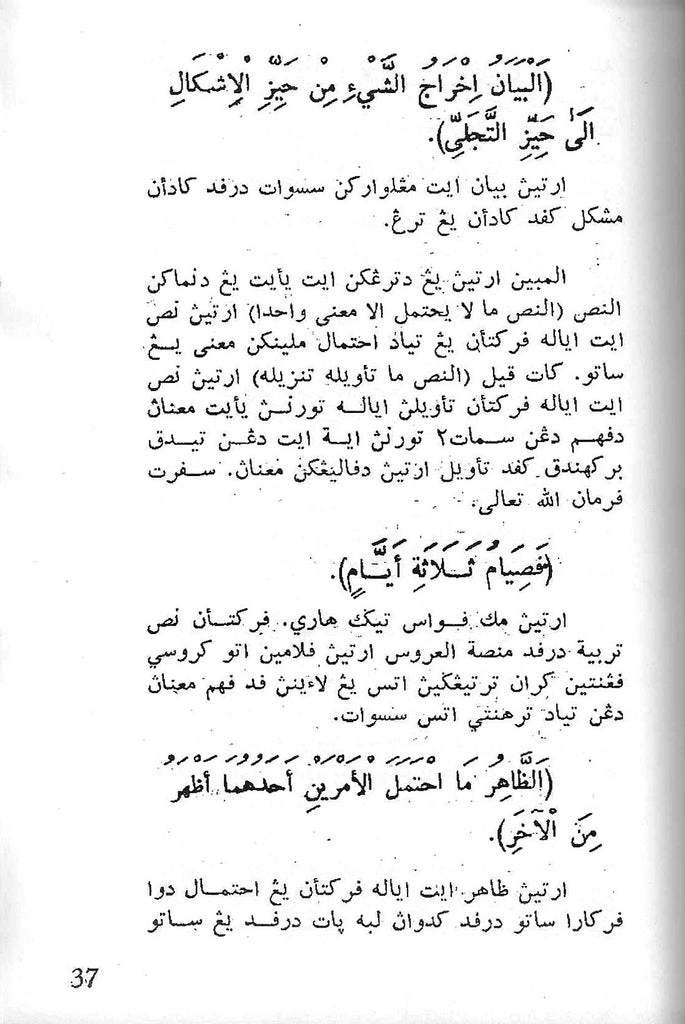 (اَلْبَيَانُ اِخْرَاجُ الشَّيْءِ مِنْ حَيِّزِ الْاِشْكَالِ
اِلَىٰ حَيِّزِ التَّجَلِّيْ).
ارتيڽ بيان ايت مڠلواركن سسوات درفد كادأن
مشكل كفد كادأن يڠ ترڠ.
المبين ارتيڽ يڠ دترڠكن ايت يأيت يڠ دنماكن
النص (النص ما لا يحتمل الا معنى واحدا) ارتيڽ نص
ايت اياله فركتأن يڠ تياد احتمال ملينكن معنى يــڠ
ساتو. كات قيل (النص ما تأويله تنزيله) ارتيڽ نص
ايت اياله فركتأن تأويلڽ ايالــه تورنــڽ يأيت معناڽ
دفهم دڠن ســمات٢ تورنڽ ايــة ايت دڠــن تيــدق
بركهندق كفد تأويل ارتيڽ دفاليڠكن معناڽ. ســفرت
فرمان الله تعالى.
(فَصِيَامُ ثَــلَاثَةِ أَيَّــامٍ).
ارتيڽ مك فــواس تيݢ هاري. فركتــأن نص
تربية درفد منصة العروس ارتيڽ فلامين اتو كروسي
فڠنتين كران ترتيڠݢيڽ اتس يڠ لاءينڽ فد فهم معناڽ
دڠن تياد ترهنتي اتس سسوات.
(اَلظَّاهِرُ مَا احْتَمَلَ الْأَمْرَيْنِ أَحَدُهُمَا أَظْهَرُ
مِنَ الْآخَرِ).
ارتيڽ ظاهر ايت اياله فركتأن يڠ احتمــال دوا
فركارا ساتو درفد كدواڽ لبه ڽات درفــد يڠ ســاتو
37